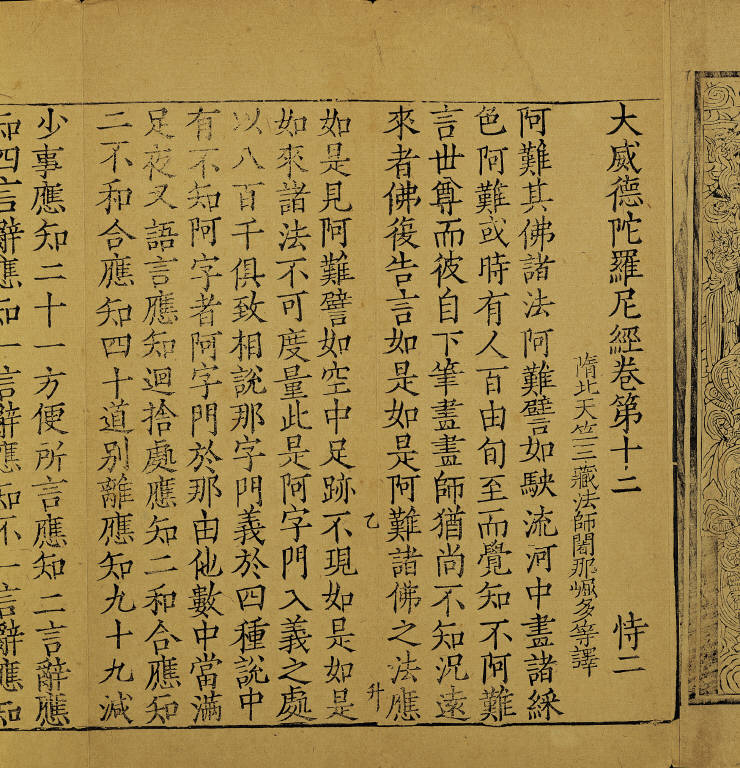 大威德陀羅尼經卷第十二 恃二
隋北天竺三藏法師闍那崛多等譯
阿難其佛諸法阿難譬如駃流河中畫諸綵
色阿難或時有人百由旬至而覺知不阿難
言世尊而彼自下筆畫畫師猶尚不知況遠
來者佛復告言如是如是阿難諸佛之法應
乙 升
如是見阿難譬如空中足跡不現如是如是
如來諸法不可度量此是阿字門入義之處
以八百千俱致相說那字門義於四種說中
有不知阿字者阿字門於那由他數中當滿
足夜叉語言應知迴捨處應知二和合應知
二不和合應知四十道別離應知九十九減
少事應知二十一方便所言應知二言辭應
知四言辭應知一言辭應知不一言辭應知